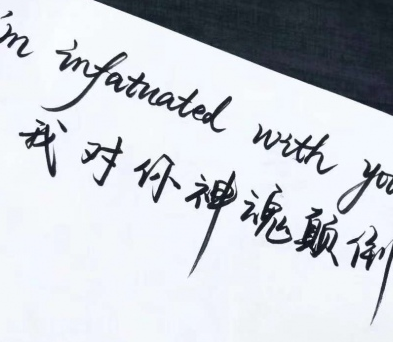 im infatuated with you
我对你神魂颠倒